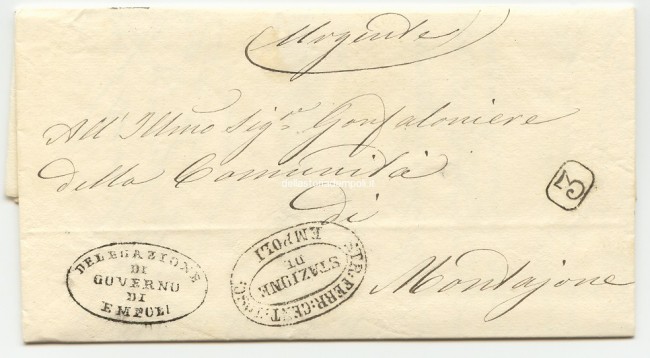 Urgente
All' Illmo Sig.re Gonfaloniere
della Comunità
di
Montajone
3
DELEGAZIONE
DI
GOVERNO
DI
EMPOLI
STAZIONE
DI
EMPOLI